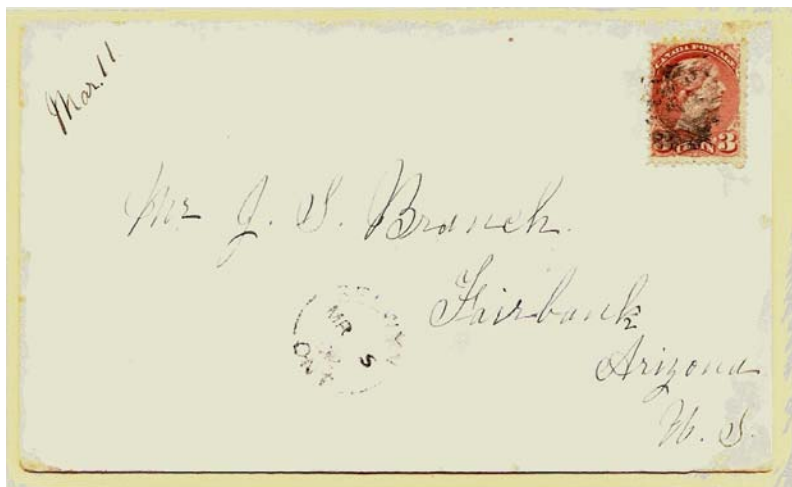 Mar. 11
CANADA POSTAGE
3 CENTS 3
Mr J. S. Branch.
Fairbank
Arizona
U. S.
MR 5
ONT